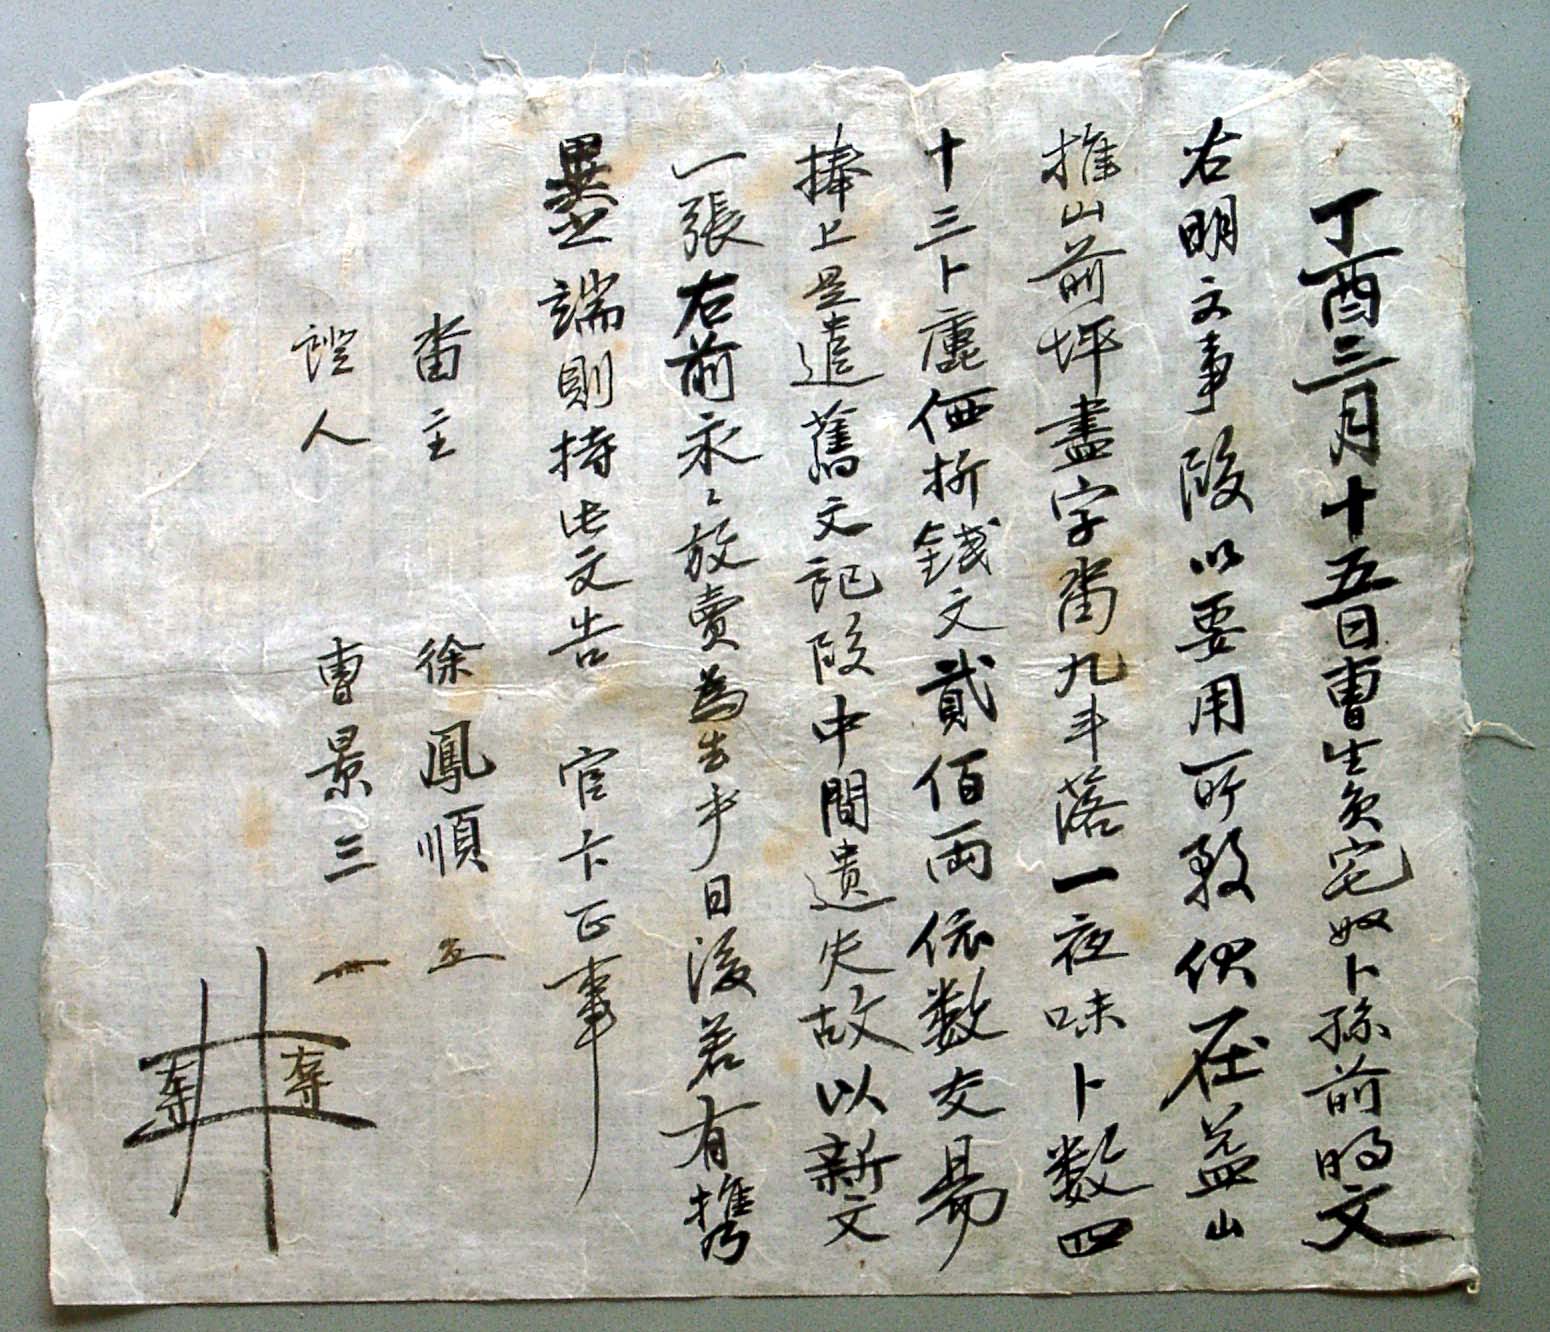 丁酉三月十五日曺生員宅奴卜孫前明文
右明文事段以要用所致伏在益山
推山前坪盡字畓九斗落一夜味卜數四
十三卜廤価折錢文貳佰両依數交易
捧上是遣舊文記段中間遺失故以新文
一張右前永〻放賣爲去乎日後若有携
異之端則持此文告 官卞正事
畓主 徐鳳順
證人 曺景三